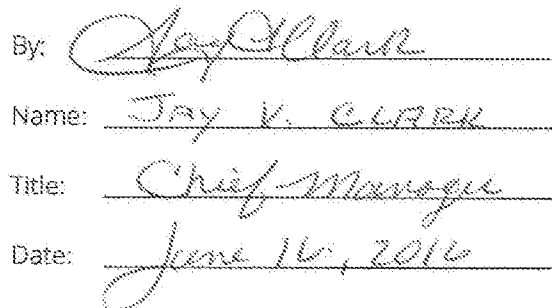 By: Jay V Clark
Name: JAY V. CLARK
Title: Chief Manager
Date: June 16, 2016